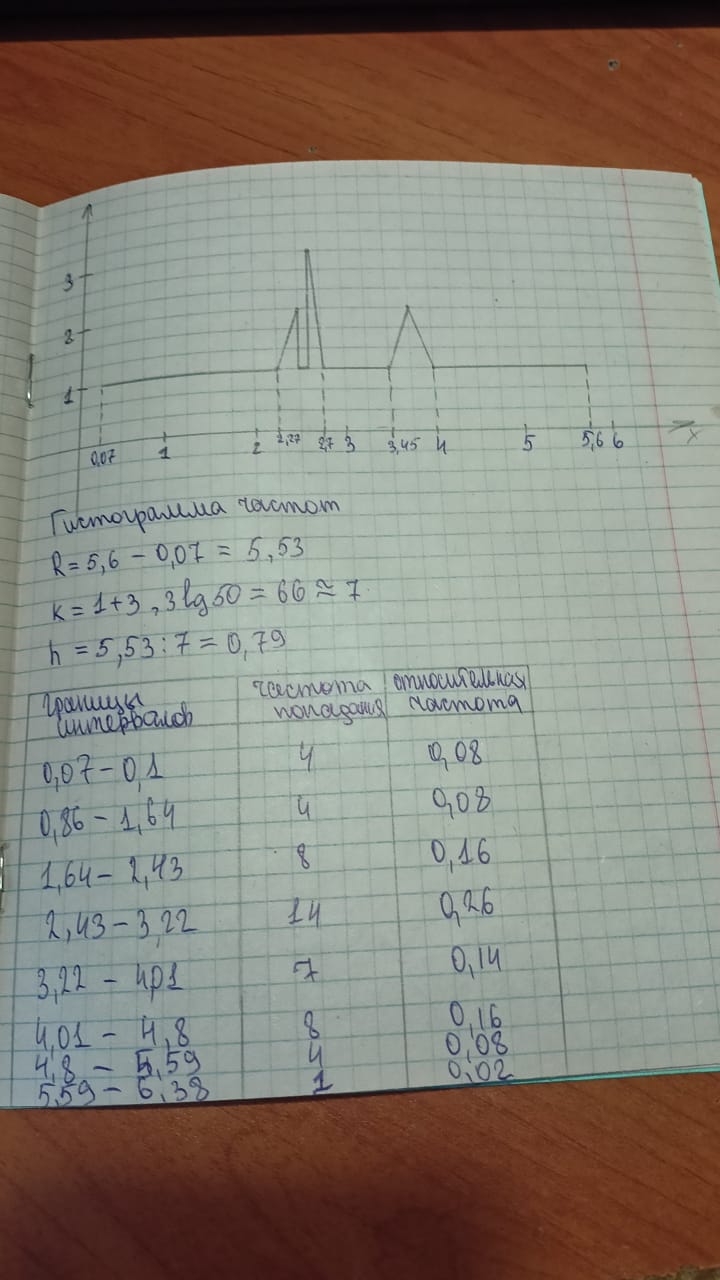 3
2
1
0,07 1 2 2,27 2,7 3 3,45 4 5 5,6 6 x
Гистограмма частот
R = 5,6 - 0,07 = 5,53
K = 1+3,3lg50 = 66 ≈ 7
h = 5,53 : 7 = 0,79
границы интервалов частота попадания относительная частота
0,07 - 0,1 4 0,08
0,86 - 1,64 4 0,08
1,64 - 2,43 8 0,16
2,43 - 3,22 14 0,26
3,22 - 4,01 7 0,14
4,01 - 4,8 8 0,16
4,8 - 5,59 4 0,08
5,59 - 6,38 1 0,02